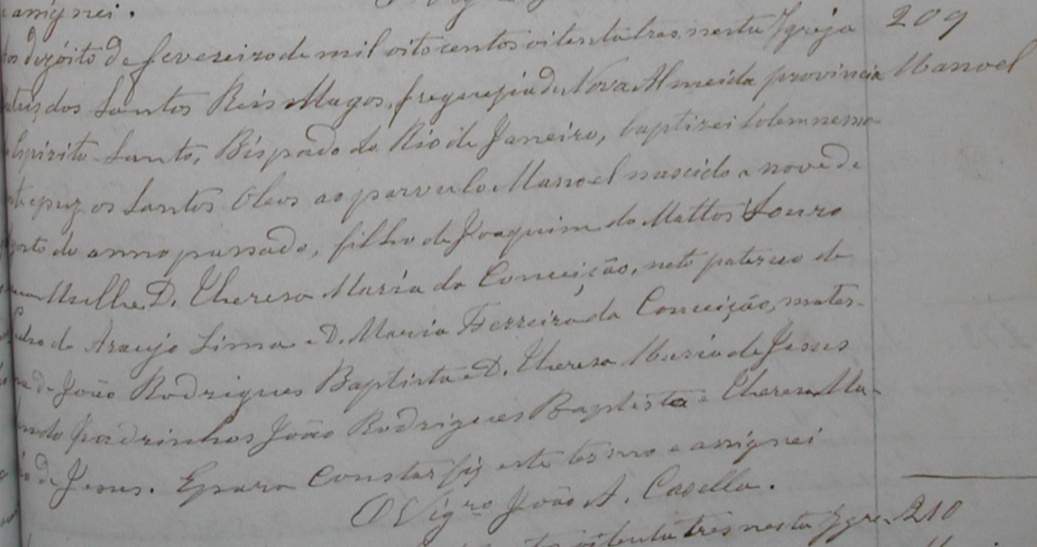 assignei.
dezoito de fevereiro de mil oitocentos oitenta tres, nesta Igreja 209
dos Santos Reis Magos, freguezia de Nova Almeida provincia Manoel
Espirito-Santo, Bispado do Rio de Janeiro, baptizei solemnemen-
te e puz os Santos Oleos ao parvulo Manoel nascido a nove de
do anno passado, filho de Joaquim de Mattos Louro
Mulher D. Thereza Maria da Conceição, neto paterno de
de Araujo Lima e D. Maria Ferreira da Conceição, mater-
de João Rodrigues Baptista e D. Thereza Maria de Jesus
padrinhos João Rodrigues Baptista e Thereza Ma-
de Jesus. E para constar fiz este termo e assignei
O Vigro João A. Casella.
oitenta tres nesta Igre- 210